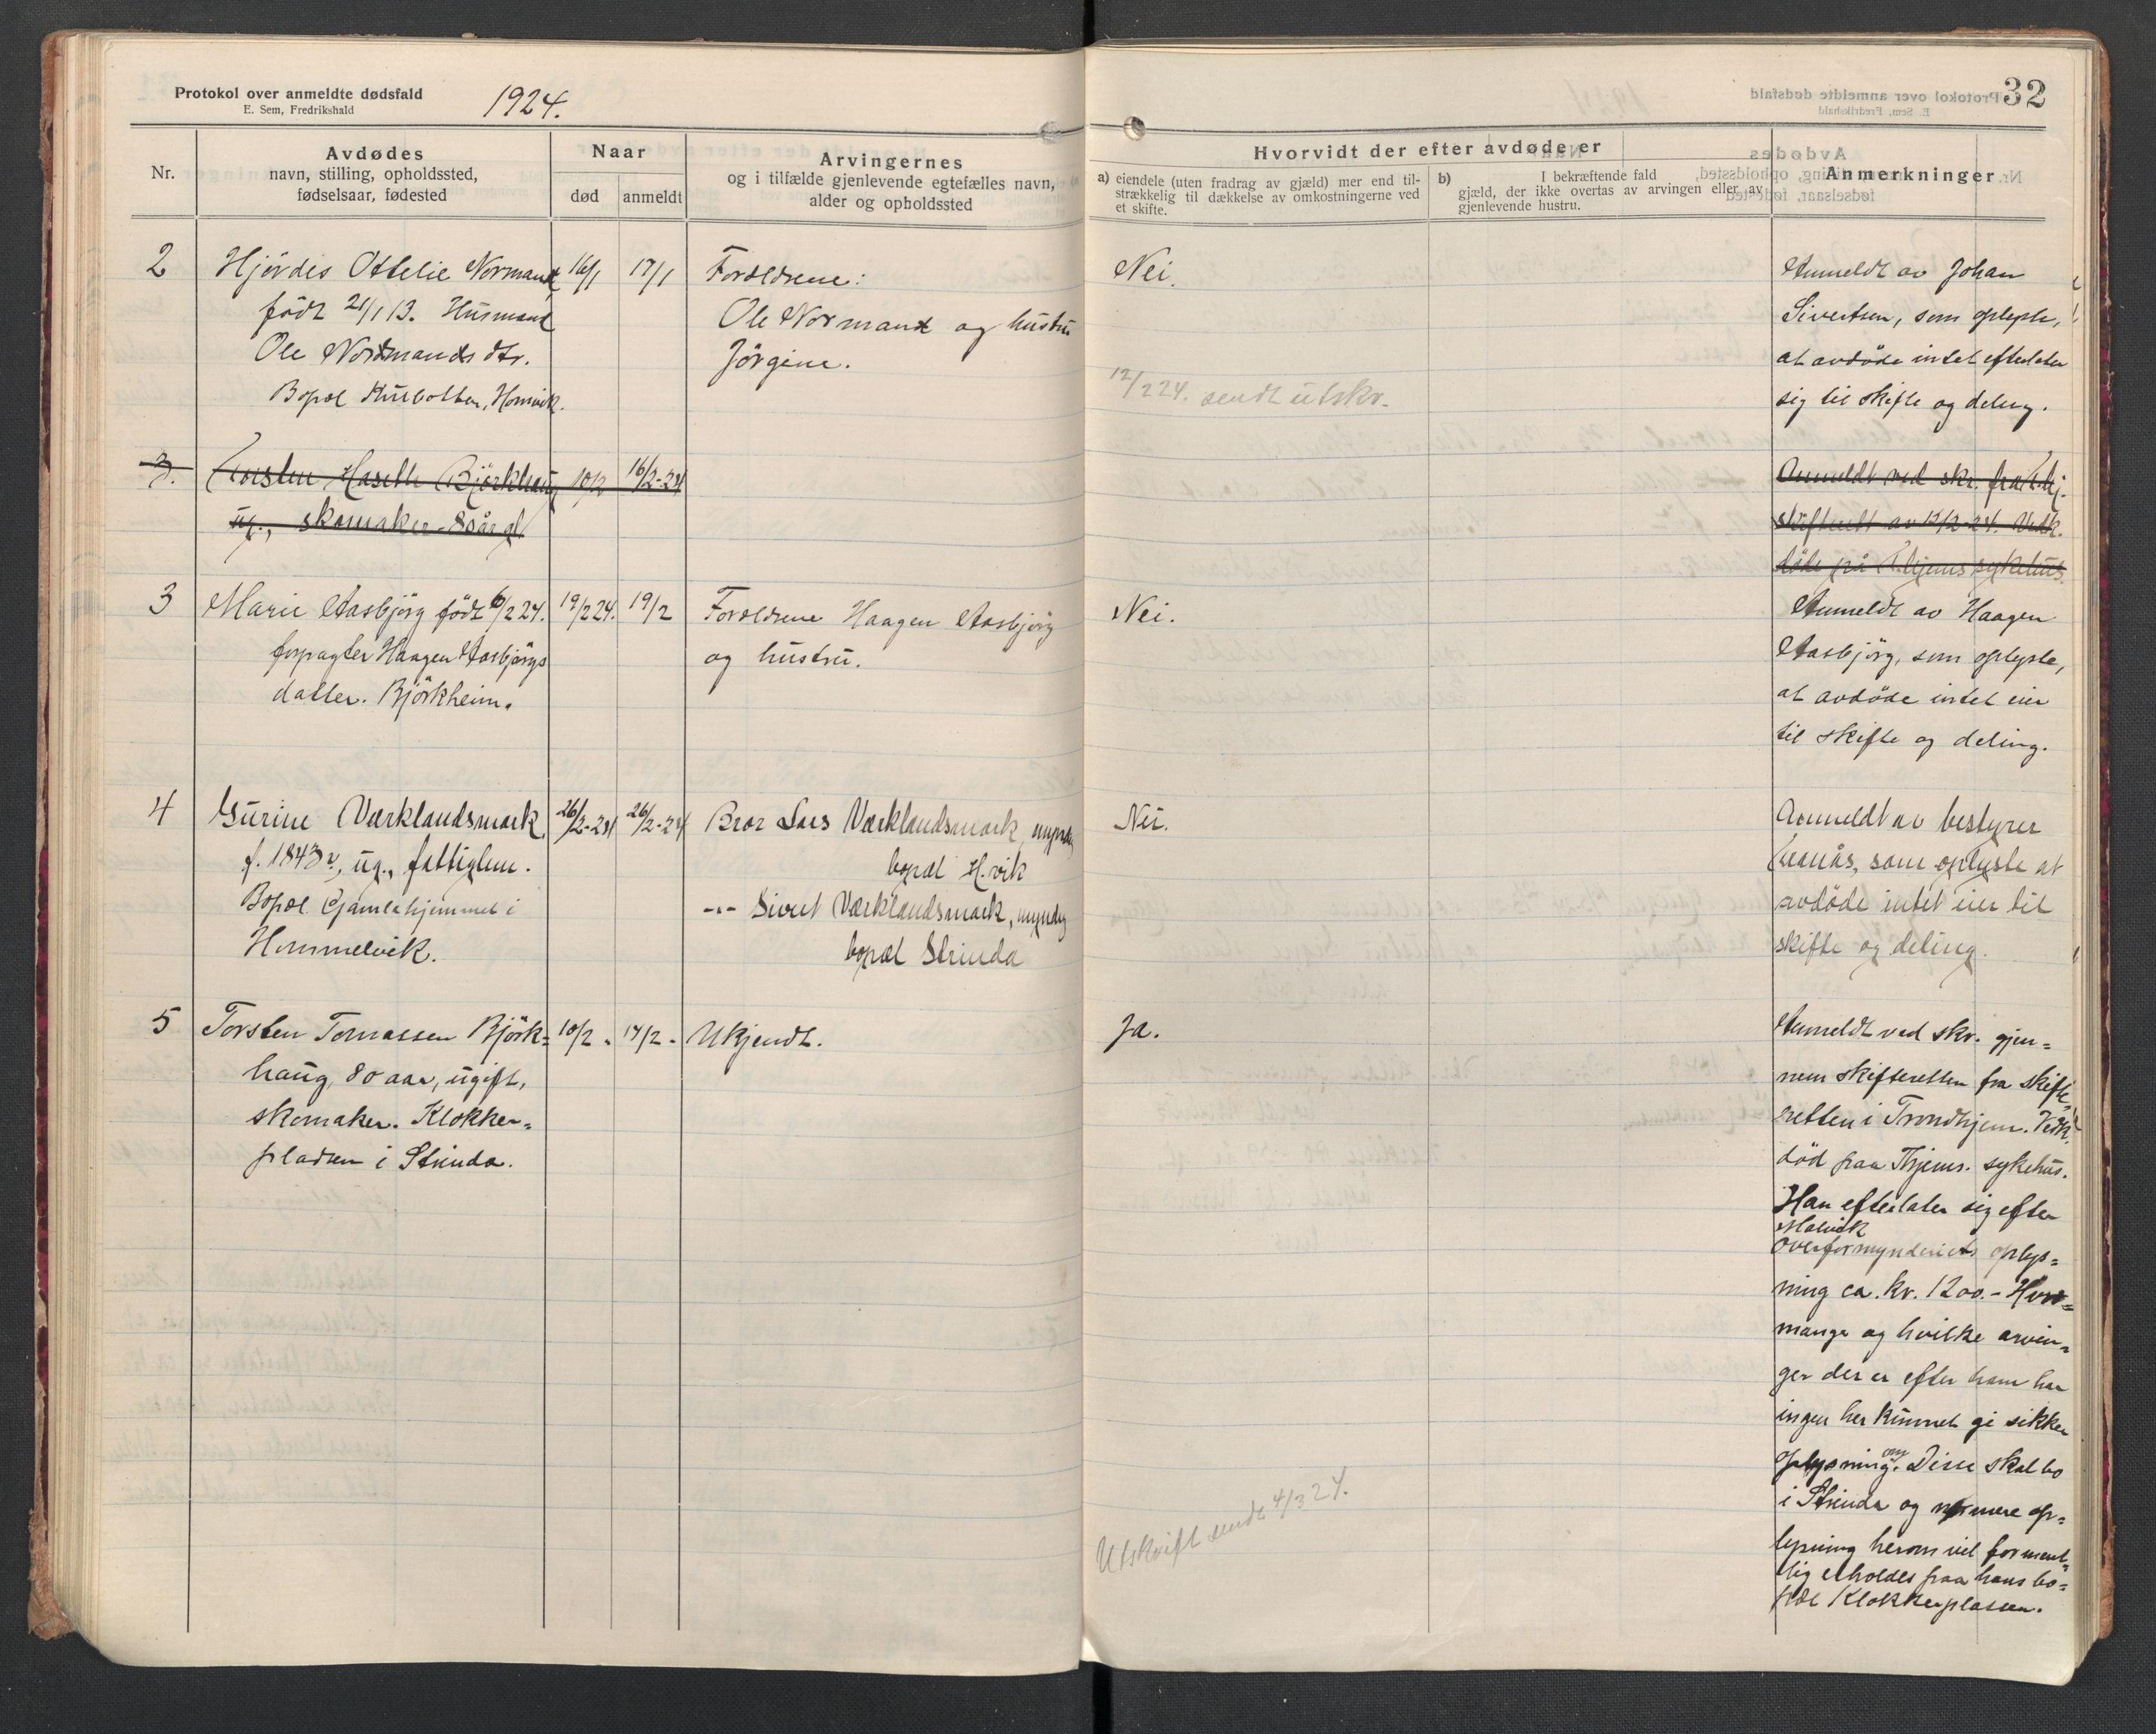 Protokol over anmeldte dødsfald
E. Sem, Fredrikshald
1924.
32
Nr.
Avdødes
navn, stilling, opholdssted,
fødselsaar, fødested
Naar
død
anmeldt
Arvingernes
og i tilfælde gjenlevende egtefælles navn,
alder og opholdssted
Hvorvidt der efter avdøde er
a) eiendele (uten fradrag av gjæld) mer end til-
strækkelig til dækkelse av omkostningerne ved
et skifte.
b) I bekræftende fald
gjæld, der ikke overtas av arvingen eller av
gjenlevende hustru.
Anmerkninger
2
Hjördis Ottelie Normand
født 21/1 13. Husmand
Ole Nordmands dtr.
Bopæl Kusbotten, Homvik.
16/1
17/1
Forældrene:
Ole Normand og hustru
Jörgine.
Nei.
12/2 24. sendt utskr.
Anmeldt av Johan
Sivertsen, som oplyste,
at avdöde intet efterlater
sig til skifte og deling.
3.
Torsten Haseth Björkhaug
ug., skomaker - 80 år gl
10/2
16/2-24
Anmeldt ved skr. fra T.hj.
skifterett av 15/2-24. Vedk.
döde på T.hjems sykehus.
3
Marie Aasbjörg født 6/2 24.
forpagter Haagen Aasbjörgs
datter. Björkheim.
19/2 24.
19/2
Forældrene Haagen Aasbjörg
og hustru.
Nei.
Anmeldt av Haagen
Aasbjörg, som oplyste,
at avdöde intet eier
til skifte og deling.
4
Gurine Værklandsmark
f. 1843, ug., fattiglem.
Bopæl Gamlehjemmet i
Hommelvik.
26/2-24
26/2-24
Bror Lars Værklandsmark, myndig
bopæl H.vik
-"- Sivert Værklandsmark, myndig
bopæl Strinda
Nei.
Anmeldt av bestyrer
som oplyste at
avdöde intet eier til
skifte og deling.
5
Torsten Tomassen Björk=
haug, 80 aar, ugift,
skomaker. Klokker=
pladsen i Strinda.
10/2 -
17/2 -
Ukjendt.
Ja.
Anmeldt ved skr. gjen=
nem skifteretten fra skifte=
retten i Trondhjem. Vedk.
død paa Thjems. sykehus.
Han efterlater sig efter
Malvik
overformynderiets oplys=
ning ca. kr. 1200.- Hvor=
mange og hvilke arvin=
ger der er efter ham har
ingen her kunnet gi sikker
oplysning om. Disse skal bo
i Strinda og nærmere op=
lysning herom vil forment=
lig erholdes paa hans bo=
pæl Klokkerplassen.
Utskrift sendt 4/3 24.